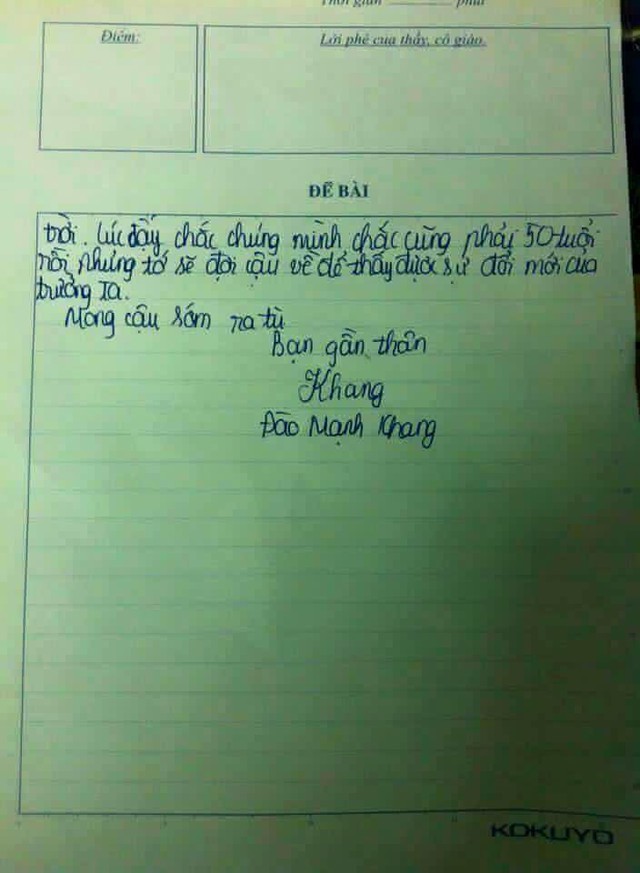 Thời gian ________ phút
Điểm:
Lời phê của thầy, cô giáo.
ĐỀ BÀI
trời. Lúc đấy chắc chúng mình chắc cũng phải 50 tuổi
rồi nhưng tớ sẽ đợi cậu về để thấy được sự đổi mới của
trường ta.
Mong cậu sớm ra tù
Bạn gần thân
Khang
Đào Mạnh Khang
KOKUYO